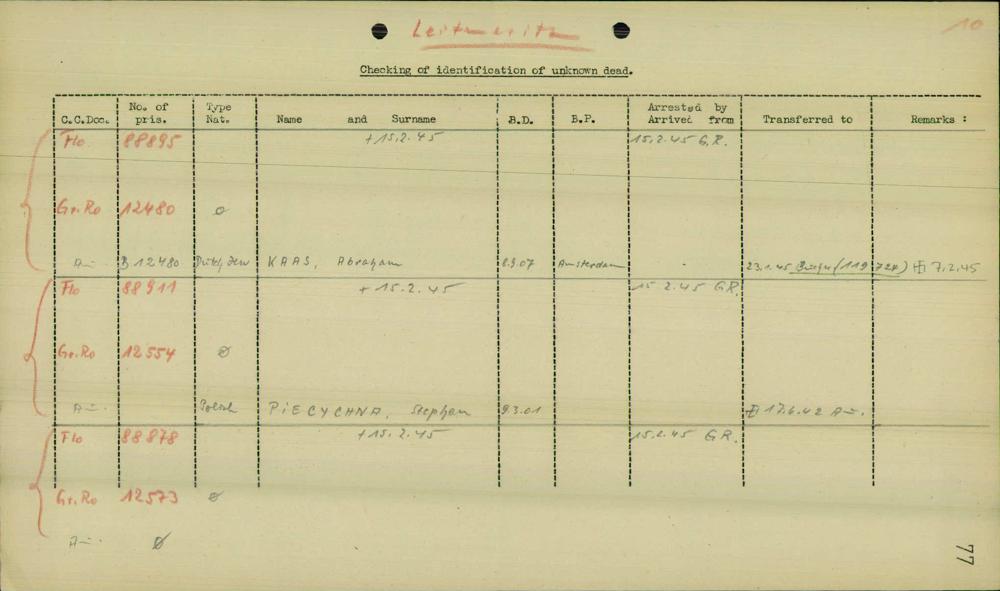 Leitmeritz 10
Checking of identification of unknown dead.
C.C.Doc. No. of pris. Type Nat. Name and Surname B.D. B.P. Arrested by Arrived from Transferred to Remarks :
Flo 88895 + 15.2.45 15.2.45 G.R.
Gr.Ro 12480 o
Au. B 12480 Dutch Jew KAAS, Abraham 8.9.07 Amsterdam - 23.1.45 (119724) 7.2.45
Flo 88911 + 15.2.45 15 2.45 GR.
Gr.Ro 12554 ø
Au. Polish PiECYCHNA, Stephan 9.3.01 17.6.42 Au.
Flo 88878 + 15.2.45 15.2.45 GR.
Gr.Ro 12573 ø
Au. ø
77